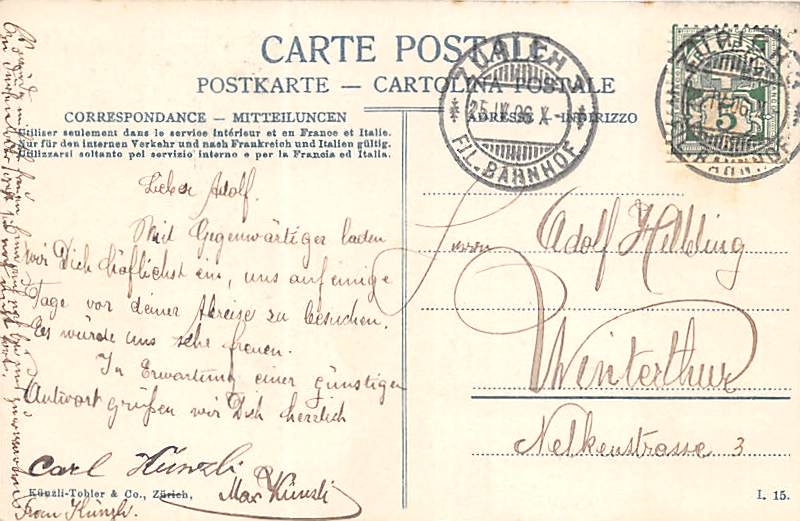 CARTE POSTALE
POSTKARTE — CARTOLINA POSTALE
CORRESPONDANCE — MITTEILUNGEN
ADRESSE — INDIRIZZO
Utiliser seulement dans le service intérieur et en France et Italie.
Nur für den internen Verkehr und nach Frankreich und Italien gültig.
Utilizzarsi soltanto pel servizio interno e per la Francia ed Italia.
ZÜRICH
25. IX. 06. X
FIL. BAHNHOF
5
Lieber Adolf.
Mit Gegenwärtiger laden
wir Dich höflichst ein, uns auf einige
Tage vor deiner Abreise zu besuchen.
Es würde uns sehr freuen.
In Erwartung einer günstigen
Antwort grüßen wir Dich herzlich
Carl Künzli
Max Künzli
Frau Künzli.
Künzli-Tobler & Co., Zürich,
Herrn
Adolf Helbling
Winterthur
Nelkenstrasse 3
I. 15.